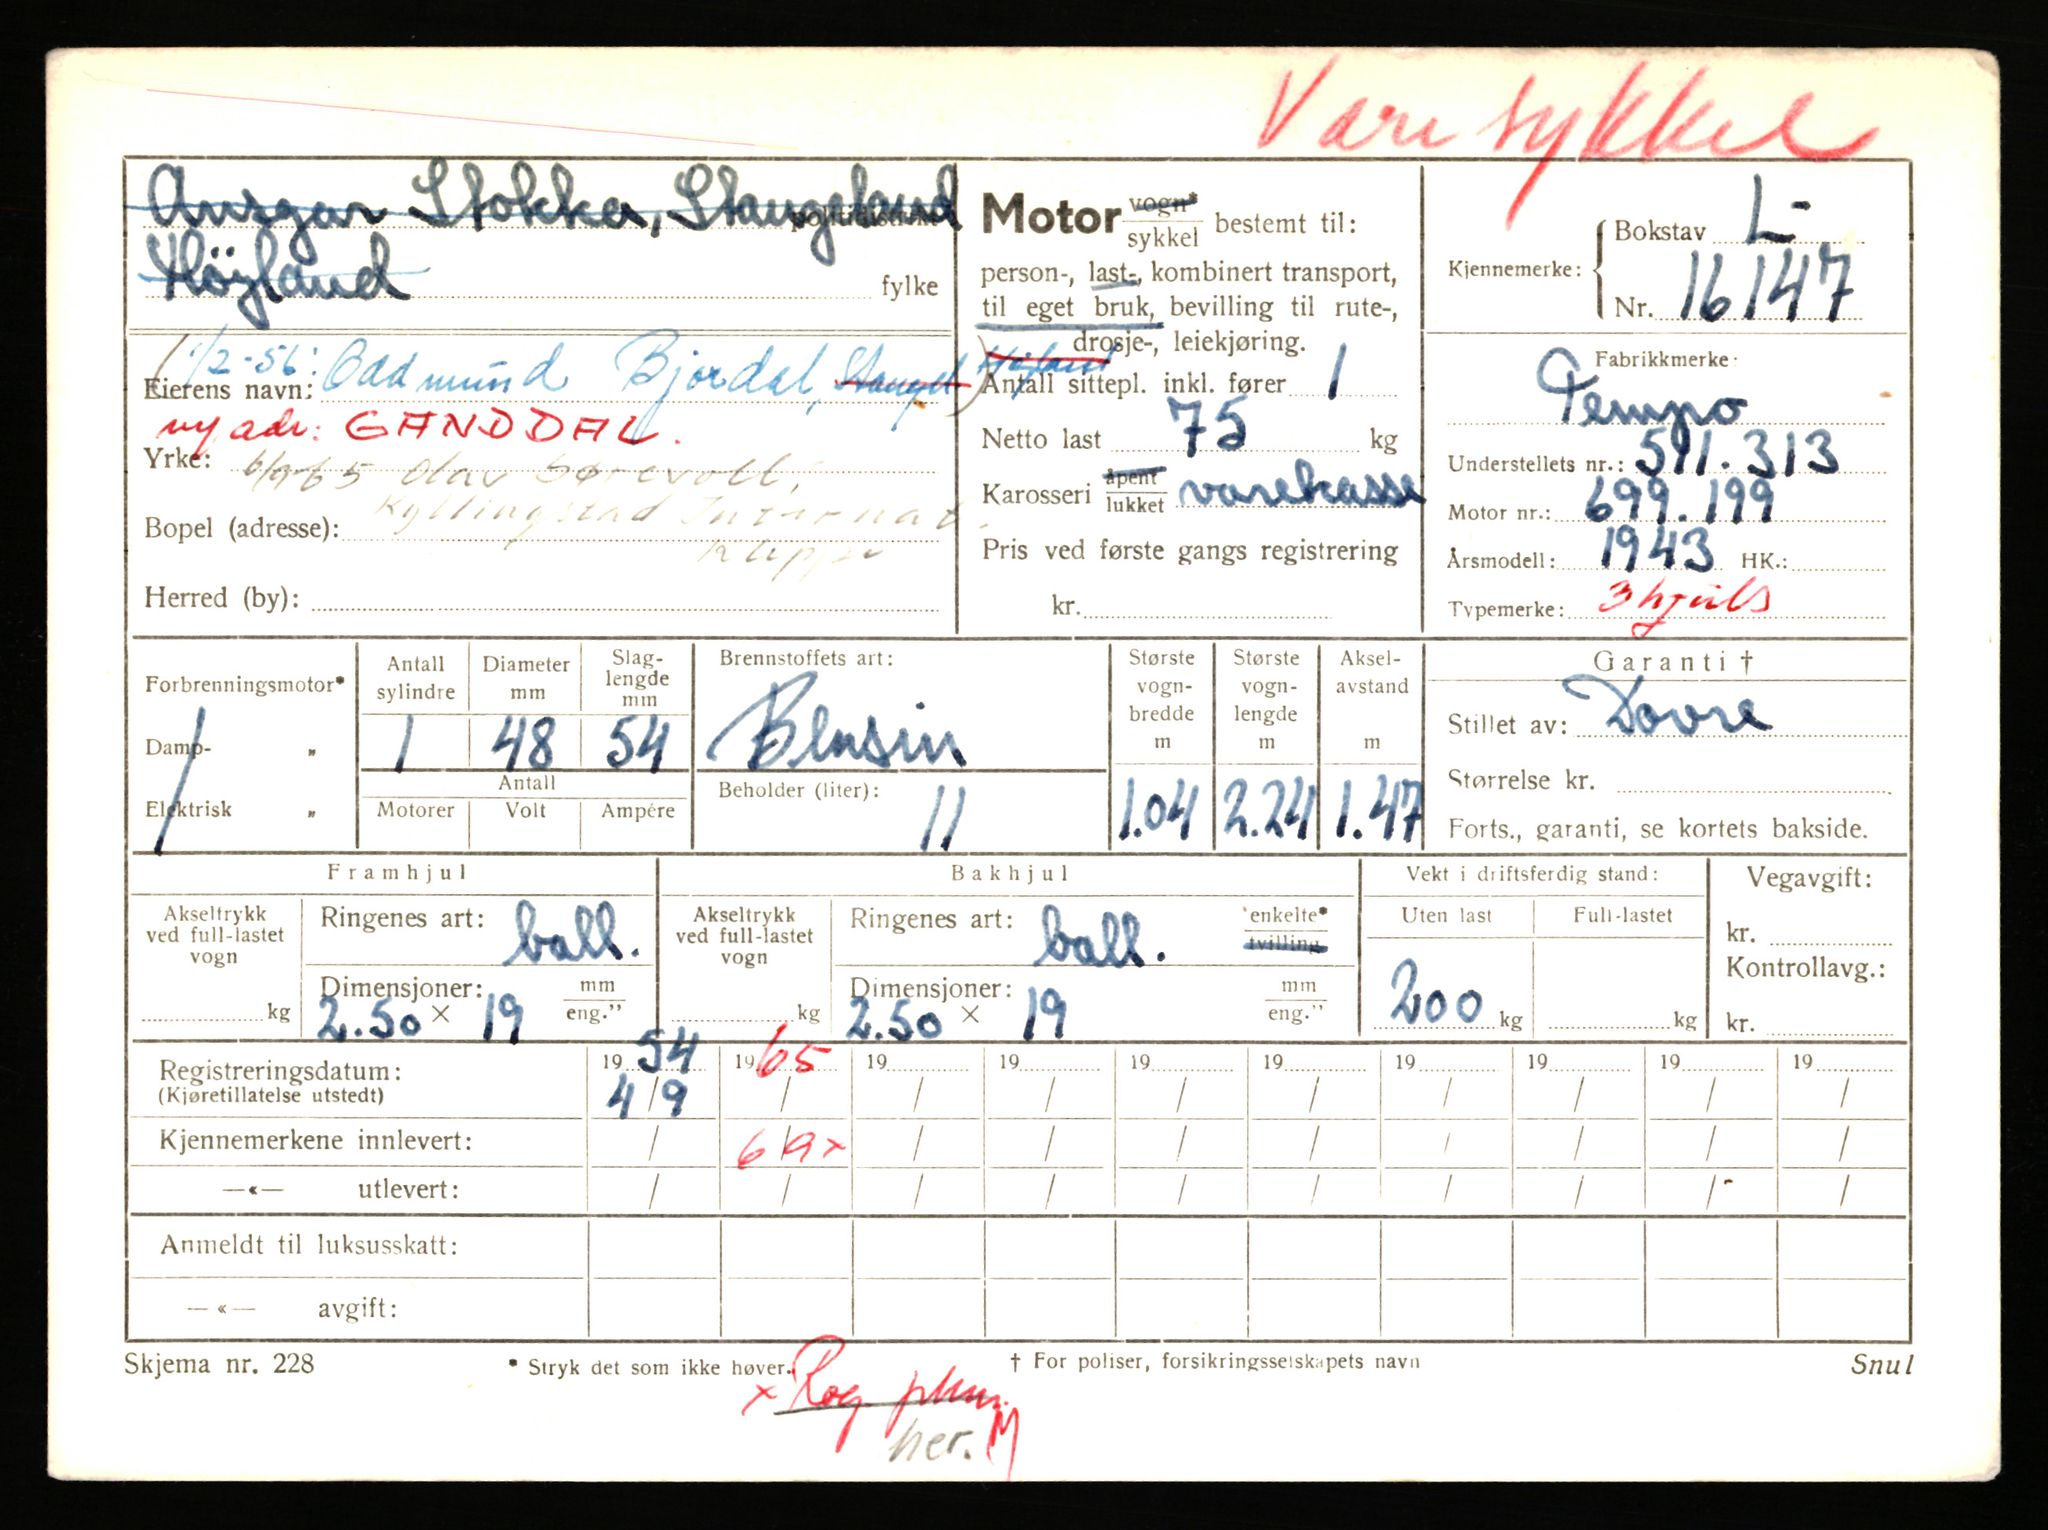 Varesykkel
Ansgar Stokka, Stangeland politidistrikt
Høyland fylke
1/2-56: Oddmund Bjordal, Stangel. Høyland
Eierens navn:
ny adr: GANDDAL.
Yrke: 6/9-65 Olav
Bopel (adresse): Kyllingstad Internat,
Klepp
Herred (by):
Motor vogn* sykkel bestemt til:
person-, last-, kombinert transport,
til eget bruk, bevilling til rute-,
drosje-, leiekjøring.
Antall sittepl. inkl. fører 1
Netto last 75 kg
Karosseri åpent lukket varekasse
Pris ved første gangs registrering
kr.
Kjennemerke: Bokstav L-
Nr. 16147
Fabrikkmerke:
Tempo
Understellets nr.: 511.313
Motor nr.: 699.199
Årsmodell: 1943 HK.:
Typemerke: 3 hjuls
Forbrenningsmotor*
Damp- "
Elektrisk "
Antall sylindre 1
Diameter mm 48
Slaglengde mm 54
Antall
Motorer Volt Ampére
Brennstoffets art:
Bensin
Beholder (liter): 11
Største vognbredde m 1.04
Største vognlengde m 2.24
Akselavstand m 1.47
Garanti †
Stillet av: Dovre
Størrelse kr.
Forts., garanti, se kortets bakside.
Framhjul
Akseltrykk ved full-lastet vogn kg
Ringenes art: ball.
Dimensjoner: mm eng."
2.50 × 19
Bakhjul
Akseltrykk ved full-lastet vogn kg
Ringenes art: ball. enkelte* tvilling
Dimensjoner: mm eng."
2.50 × 19
Vekt i driftsferdig stand:
Uten last Full-lastet
200 kg kg
Vegavgift:
kr.
Kontrollavg.:
kr.
Registreringsdatum: 1954 1965 19 19 19 19 19 19 19 19
(Kjøretillatelse utstedt) 4/9 / / / / / / / / /
Kjennemerkene innlevert: / 6/9x / / / / / / / /
—«— utlevert: / / / / / / / / / /
Anmeldt til luksusskatt:
—«— avgift:
Skjema nr. 228 * Stryk det som ikke høver. † For poliser, forsikringsselskapets navn Snul
x Rog.
her. M